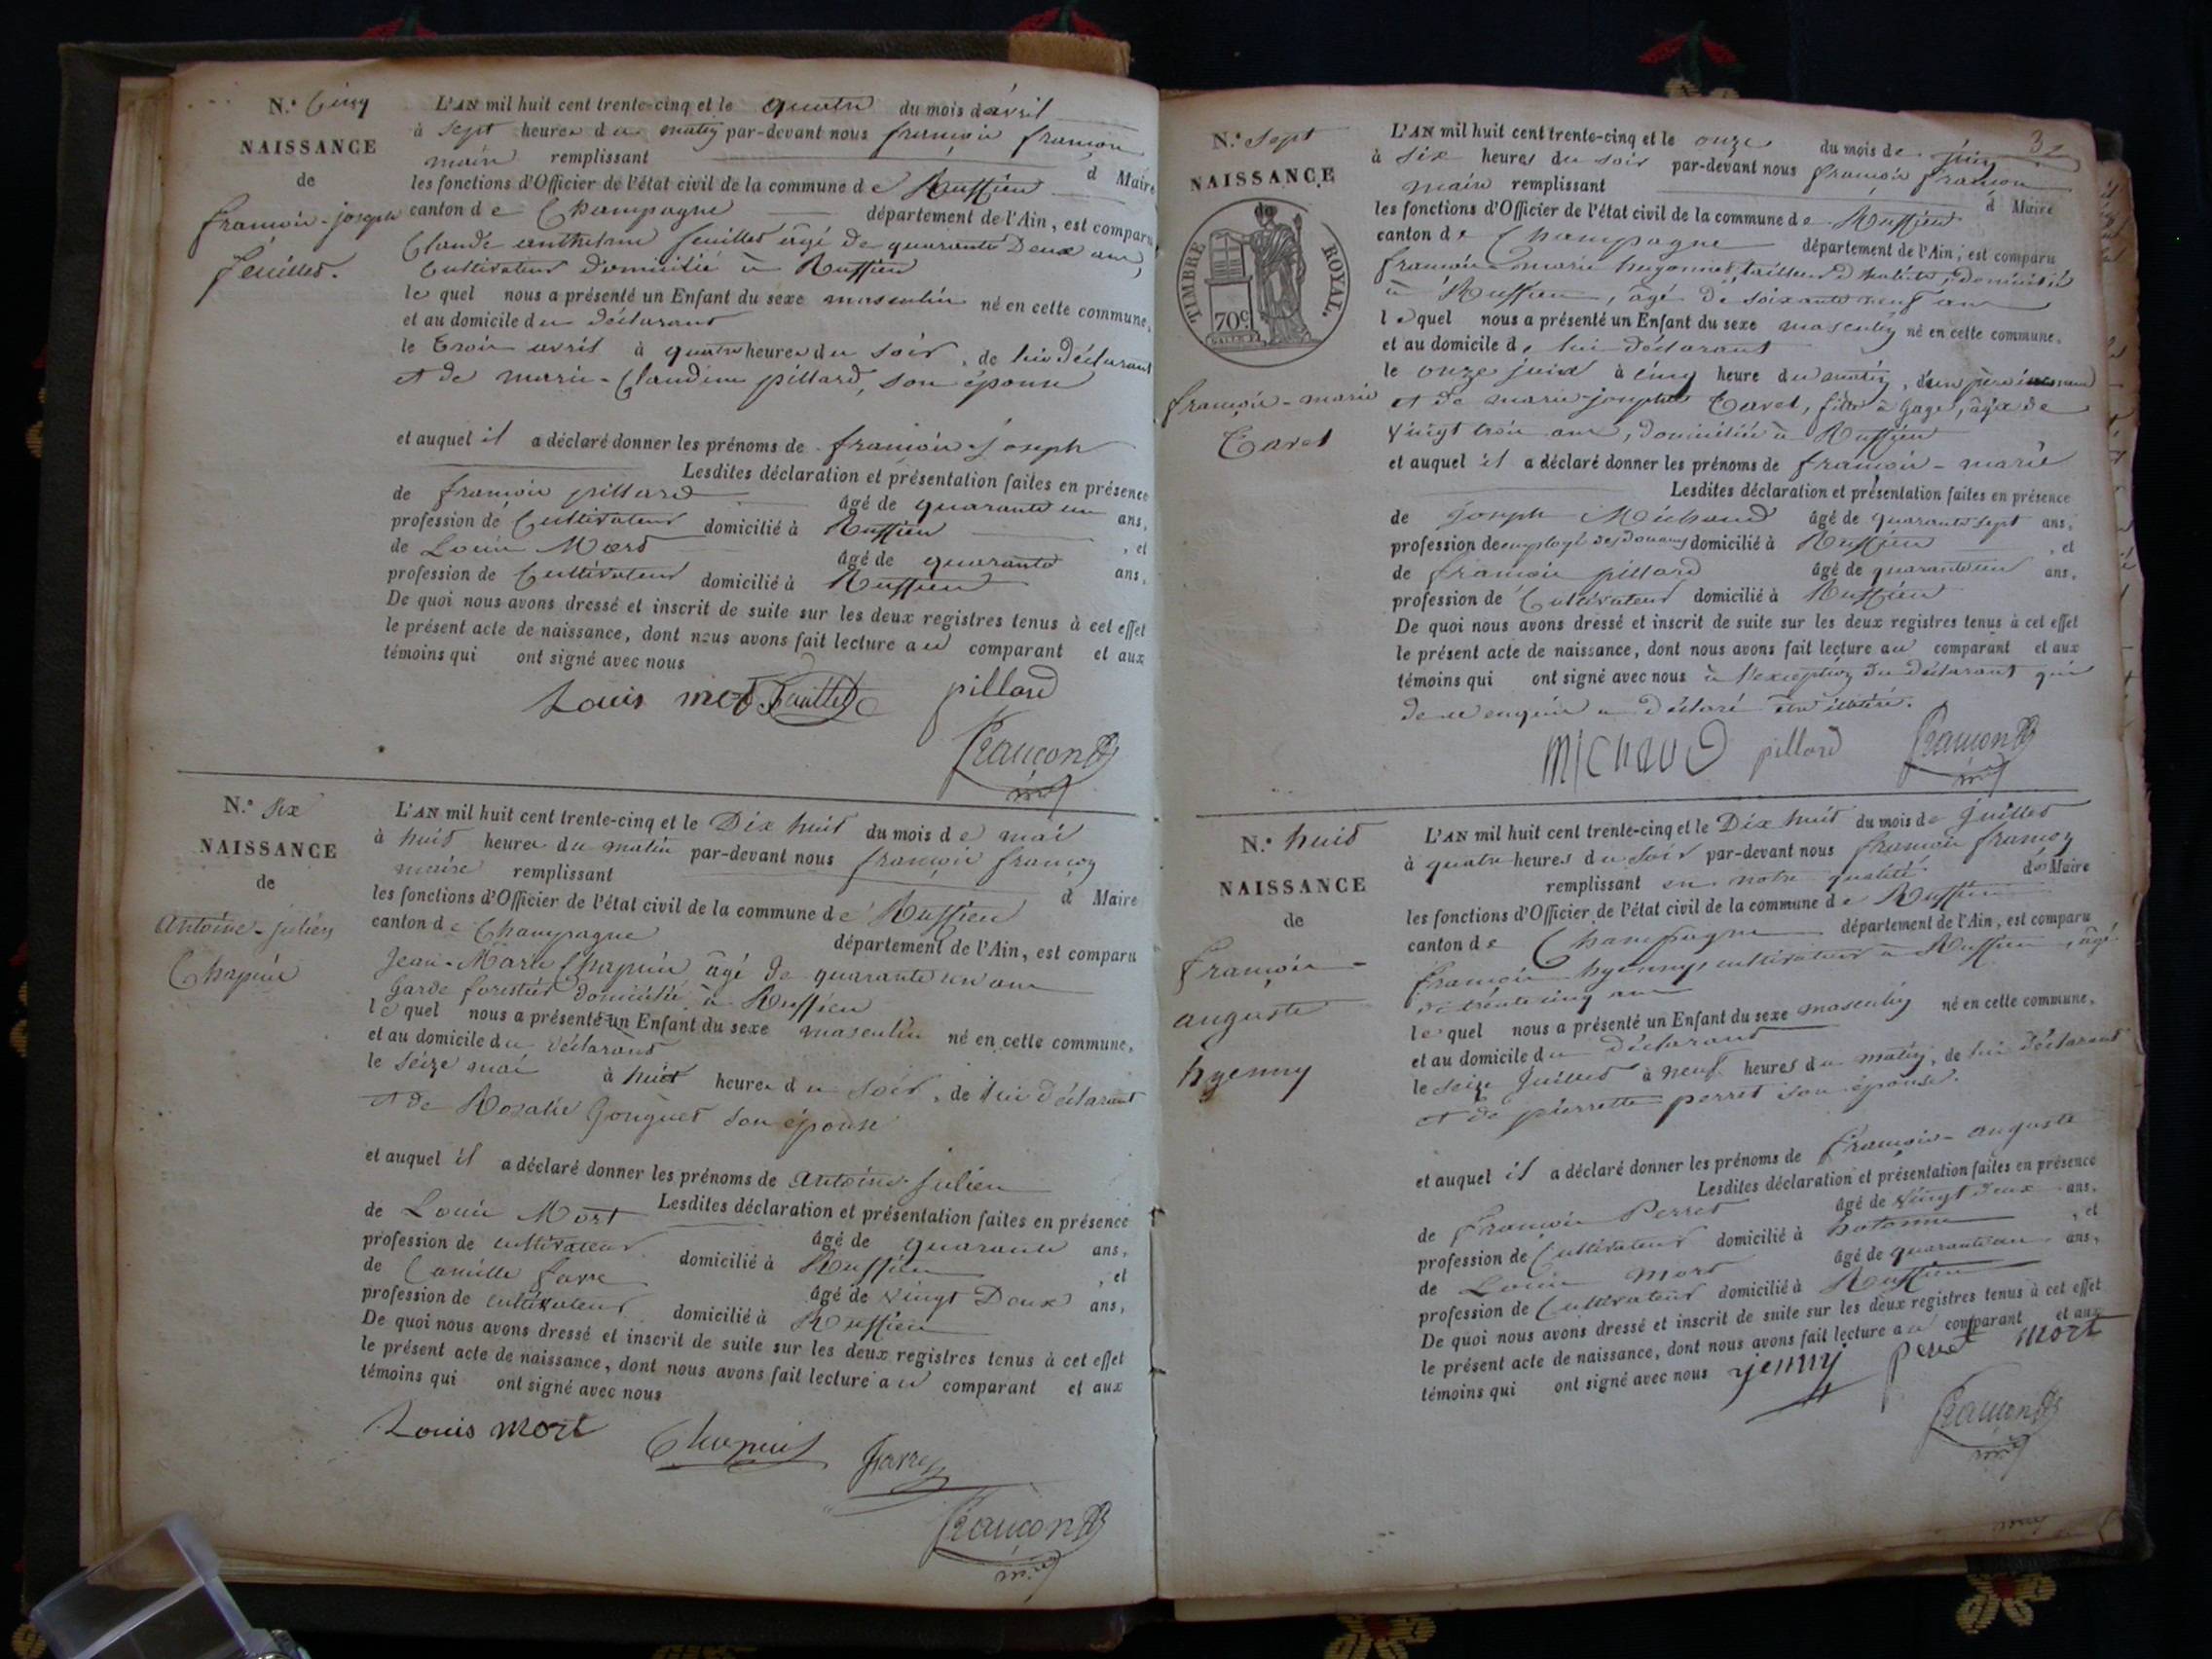 N.° Cinq
NAISSANCE
de
françois-joseph
feuillet.
L'AN mil huit cent trente-cinq et le quatre du mois d'avril
à sept heures du matin par-devant nous françois françon
maire remplissant d Maire
les fonctions d'Officier de l'état civil de la commune de Ruffieu
canton de Champagne département de l'Ain, est comparu
Claude anthelme feuillet âgé de quarante Deux ans,
Cultivateur domicilié à Ruffieu
lequel nous a présenté un Enfant du sexe masculin né en cette commune,
et au domicile du déclarant
le trois avril à quatre heures du soir, de lui déclarant
et de marie-Claudine pillard, son épouse
et auquel il a déclaré donner les prénoms de françois joseph
Lesdites déclaration et présentation faites en présence
de françois pillard âgé de quarante un ans,
profession de Cultivateur domicilié à Ruffieu, et
de Louis Mort âgé de quarante ans,
profession de Cultivateur domicilié à Ruffieu
De quoi nous avons dressé et inscrit de suite sur les deux registres tenus à cet effet
le présent acte de naissance, dont nous avons fait lecture au comparant et aux
témoins qui ont signé avec nous
Louis mort feuillet pillard
françon
N.° Six
NAISSANCE
de
Antoine-julien
Chapuis
L'AN mil huit cent trente-cinq et le Dix huit du mois de mai
à huit heures du matin par-devant nous françois françon
maire remplissant d Maire
les fonctions d'Officier de l'état civil de la commune de Ruffieu
canton de Champagne département de l'Ain, est comparu
Jean-Marie Chapuis âgé de quarante un ans
garde forestier domicilié à Ruffieu
lequel nous a présenté un Enfant du sexe masculin né en cette commune,
et au domicile du déclarant
le seize mai à huit heures du soir, de lui déclarant
et de Rosalie Gonguet son épouse
et auquel il a déclaré donner les prénoms de antoine-julien
Lesdites déclaration et présentation faites en présence
de Louis Mort âgé de quarante ans,
profession de cultivateur domicilié à Ruffieu, et
de Camille favre âgé de vingt Deux ans,
profession de cultivateur domicilié à Ruffieu
De quoi nous avons dressé et inscrit de suite sur les deux registres tenus à cet effet
le présent acte de naissance, dont nous avons fait lecture au comparant et aux
témoins qui ont signé avec nous
Louis mort Chapuis favre
françon
N.° Sept
NAISSANCE
de
TIMBRE ROYAL.
70c.
françois-marie
Tavel
L'AN mil huit cent trente-cinq et le onze du mois de juin
à six heures du soir par-devant nous françois françon
maire remplissant d Maire
les fonctions d'Officier de l'état civil de la commune de Ruffieu
canton de Champagne département de l'Ain, est comparu
françois-marie hugonnet, tailleur d'habits, domicilié
à Ruffieu, âgé de soixante neuf ans
lequel nous a présenté un Enfant du sexe masculin né en cette commune,
et au domicile de lui déclarant
le onze juin à cinq heure du matin, d'un père inconnu
et de marie-josephte Tavel, fille à gage, âgée de
vingt trois ans, domiciliée à Ruffieu
et auquel il a déclaré donner les prénoms de françois-marie
Lesdites déclaration et présentation faites en présence
de joseph Michaud âgé de quarante sept ans,
profession de employé des douanes domicilié à Ruffieu, et
de françois pillard âgé de quarante un ans,
profession de Cultivateur domicilié à Ruffieu
De quoi nous avons dressé et inscrit de suite sur les deux registres tenus à cet effet
le présent acte de naissance, dont nous avons fait lecture au comparant et aux
témoins qui ont signé avec nous à l'exception du déclarant qui
de ce enquis a déclaré être illitéré.
Michaud pillard françon
N.° huit
NAISSANCE
de
françois-
auguste
hyenny
L'AN mil huit cent trente-cinq et le Dix huit du mois de juillet
à quatre heures du soir par-devant nous françois françon
remplissant en notre qualité de Maire
les fonctions d'Officier de l'état civil de la commune de Ruffieu
canton de Champagne département de l'Ain, est comparu
françois hyenny, cultivateur à Ruffieu, âgé
de trente cinq ans
lequel nous a présenté un Enfant du sexe masculin né en cette commune,
et au domicile du déclarant
le seize juillet à neuf heures du matin, de lui déclarant
et de pierrette perret son épouse.
et auquel il a déclaré donner les prénoms de françois-auguste
Lesdites déclaration et présentation faites en présence
de françois Perret âgé de vingt deux ans,
profession de Cultivateur domicilié à hotonne, et
de Louis mort âgé de quarante un ans,
profession de Cultivateur domicilié à Ruffieu
De quoi nous avons dressé et inscrit de suite sur les deux registres tenus à cet effet
le présent acte de naissance, dont nous avons fait lecture au comparant et aux
témoins qui ont signé avec nous yenny perret mort
françon